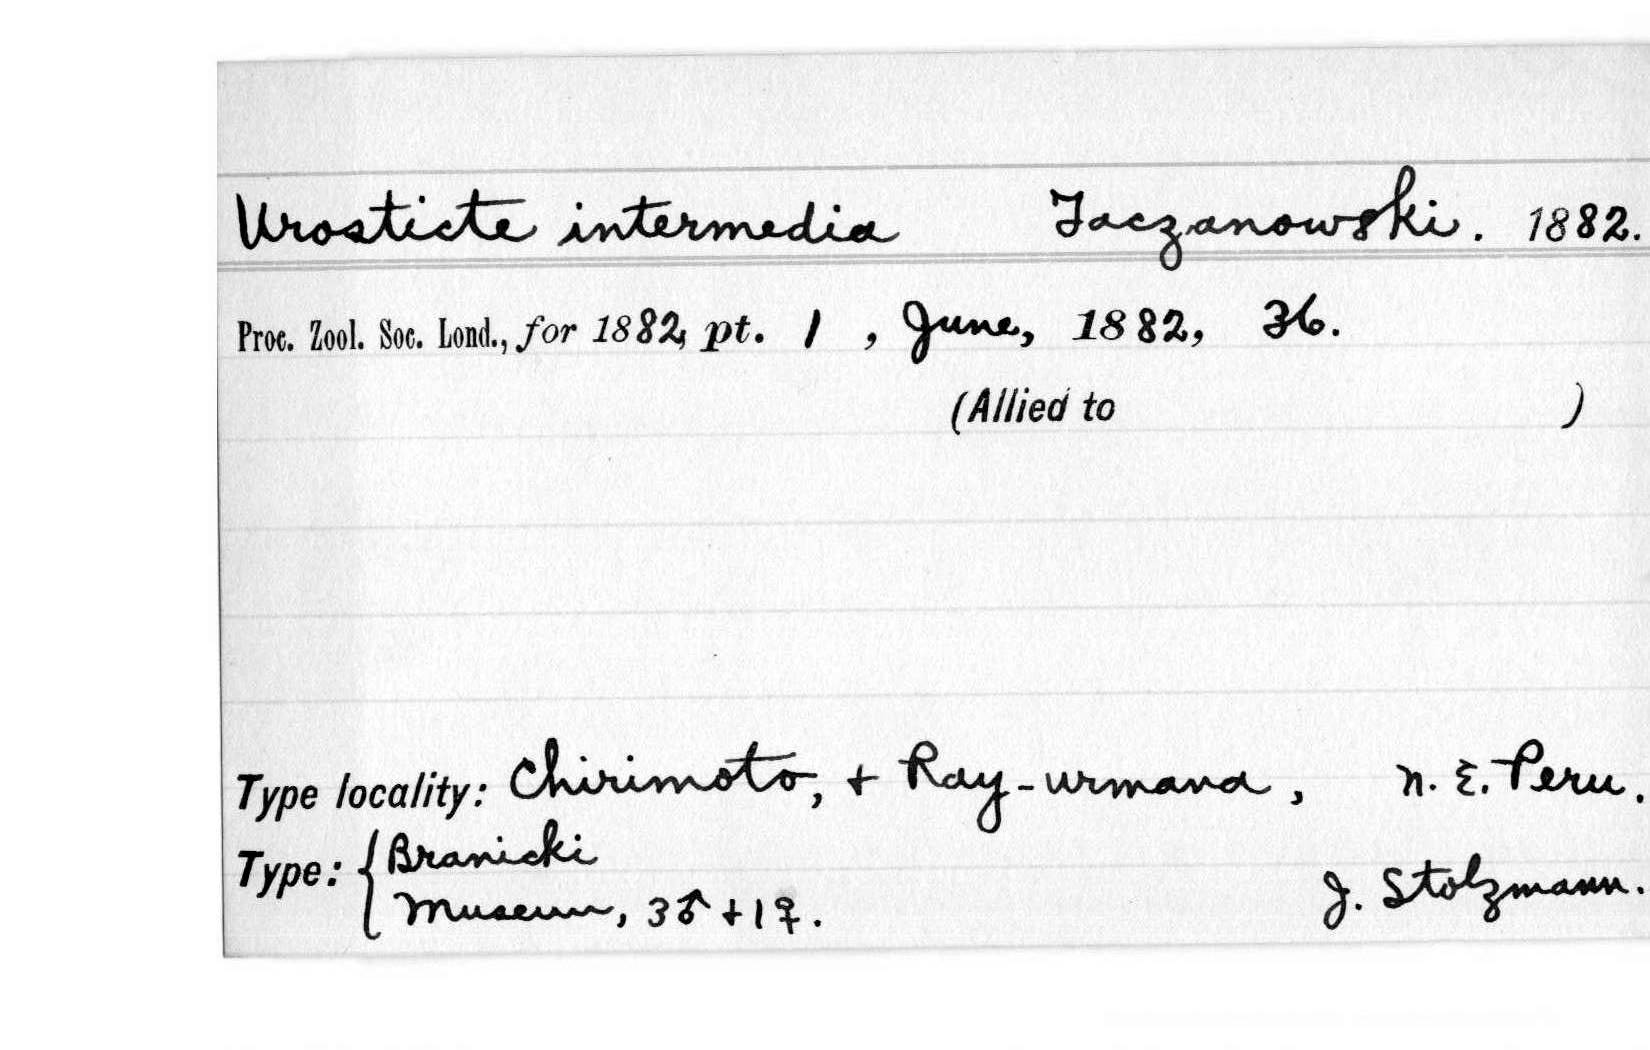 Urosticte intermedia Taczanowski. 1882.
Proc. Zool. Soc. Lond., for 1882, pt. 1, June, 1882, 36.
(Allied to )
Type locality: Chirimoto, + Ray-urmana, N. E. Peru.
Type: { Branicki
Museum, 3♂ + 1♀. J. Stolzmann.